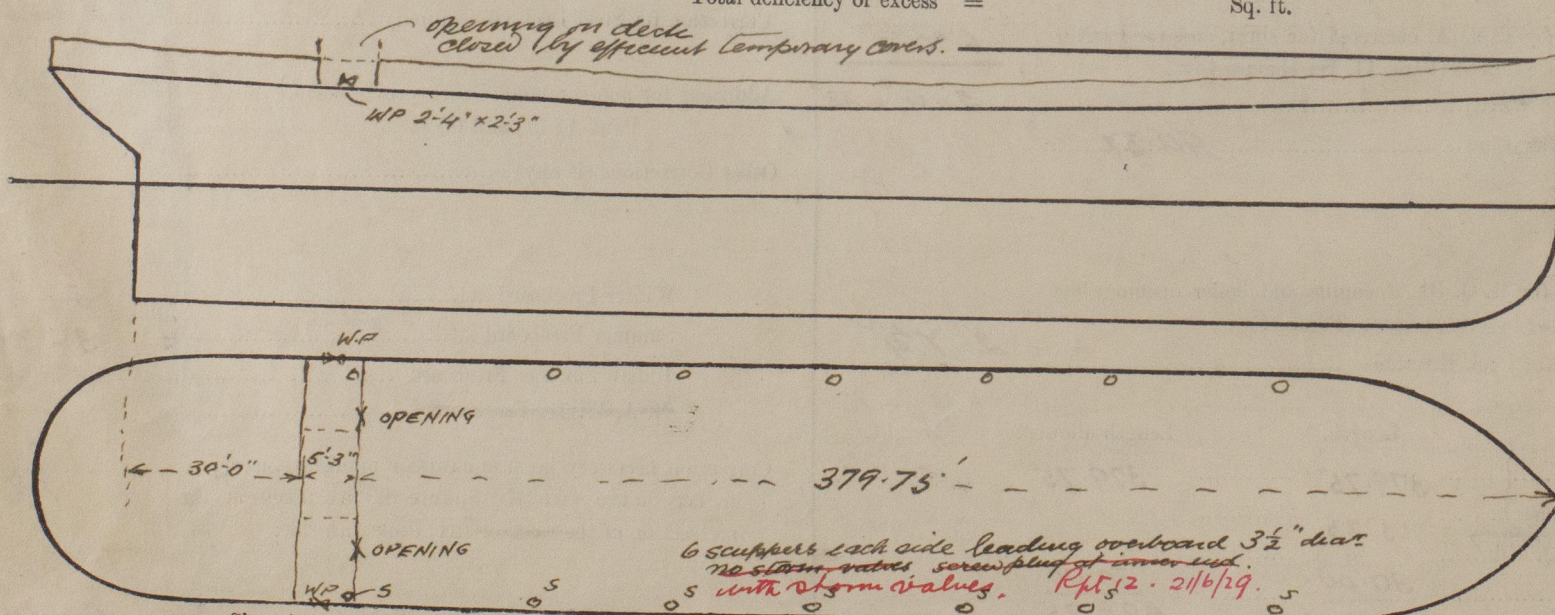 Total deficiency or excess = Sq. ft.
opening on deck
closed by efficient temporary covers.
WP 2'-4" × 2'-3"
W.P
OPENING
30'-0"
5'-3"
379.75'
OPENING
6 scuppers each side leading overboard 3½" diar
no storm valves screw plug at inner end.
with storm valves. Rpt 12. 21/6/29.
WP
S
S
S
S
S
S
S